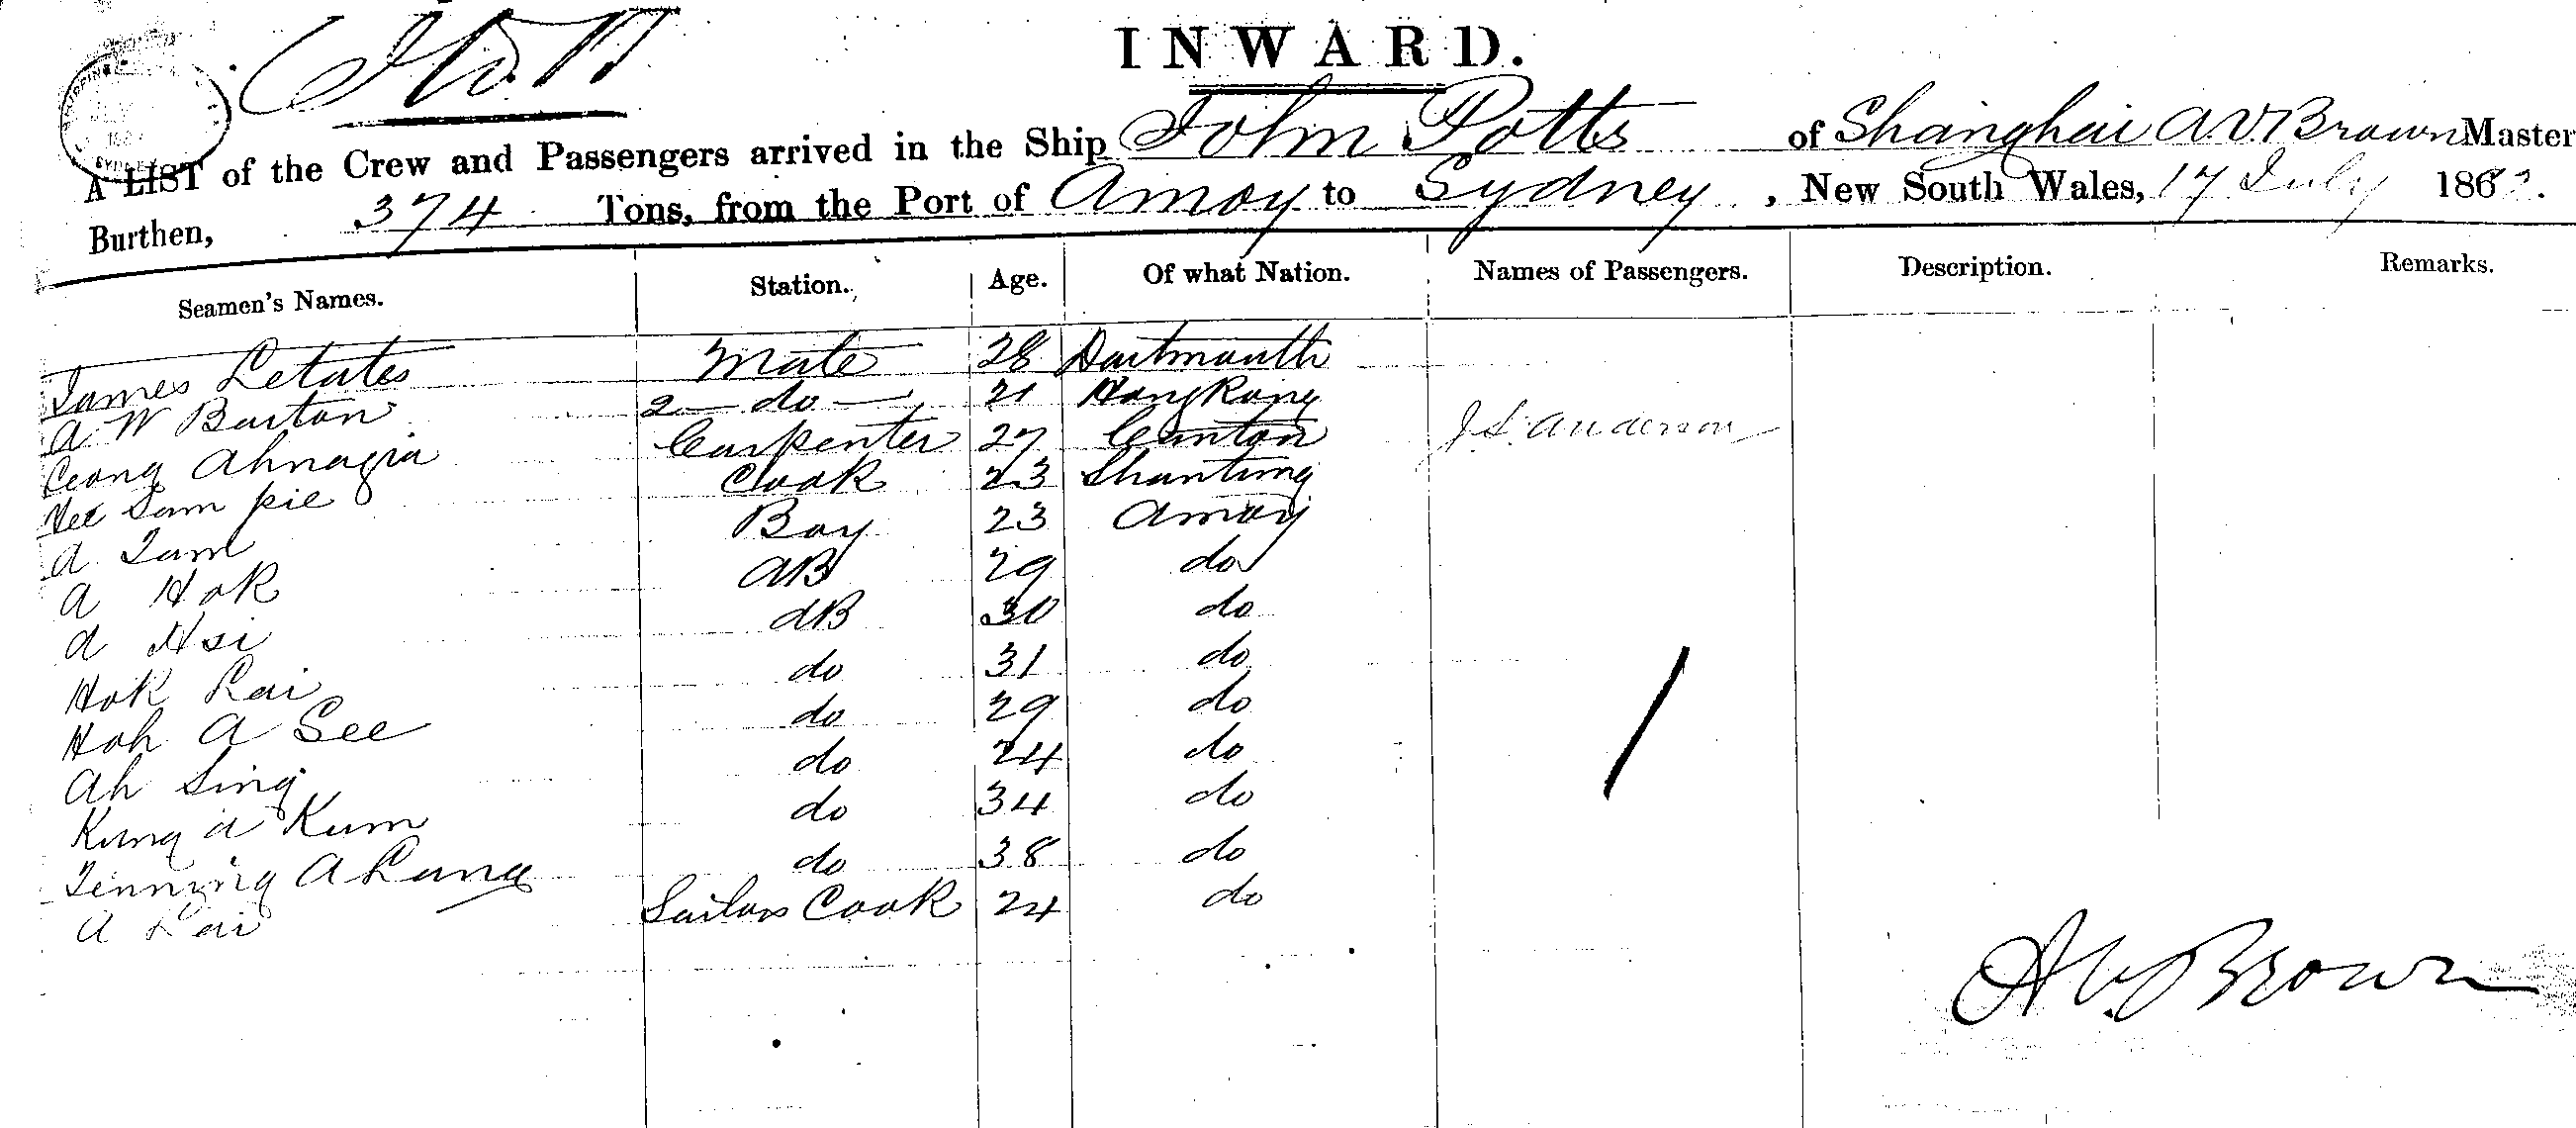 INWARD.
A LIST of the Crew and Passengers arrived in the Ship John Potts of Shanghai A.V. Brown Master
Burthen, 374 Tons, from the Port of Amoy to Sydney, New South Wales, 17 July 186
Seamen's Names. Station. Age. Of what Nation. Names of Passengers. Description. Remarks.
James Letates Mate 28 Dartmouth
A W Burton 2 — do — 21 Hong Kong
Ahnagia Carpenter 27 Canton J.S. Anderson
Sam pie Cook 23 Shantung
A Tam Boy 23 Amoy
A Hok AB 29 do
A Hsi AB 30 do
Hok Lai do 31 do
Hoh A See do 29 do
Ah Sing do 24 do
Kung A Kum do 34 do
A Lung do 38 do
A Lai Sailors Cook 24 do
A V Brown